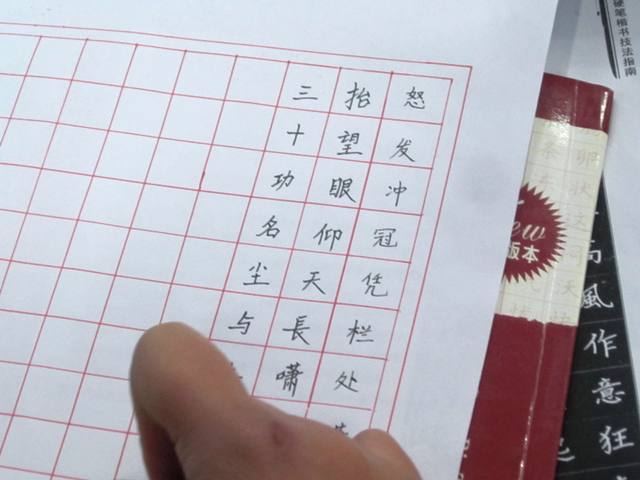 怒发冲冠凭栏处
抬望眼仰天長嘯
三十功名尘与
硬笔楷书技法指南
New
版本
風作意狂